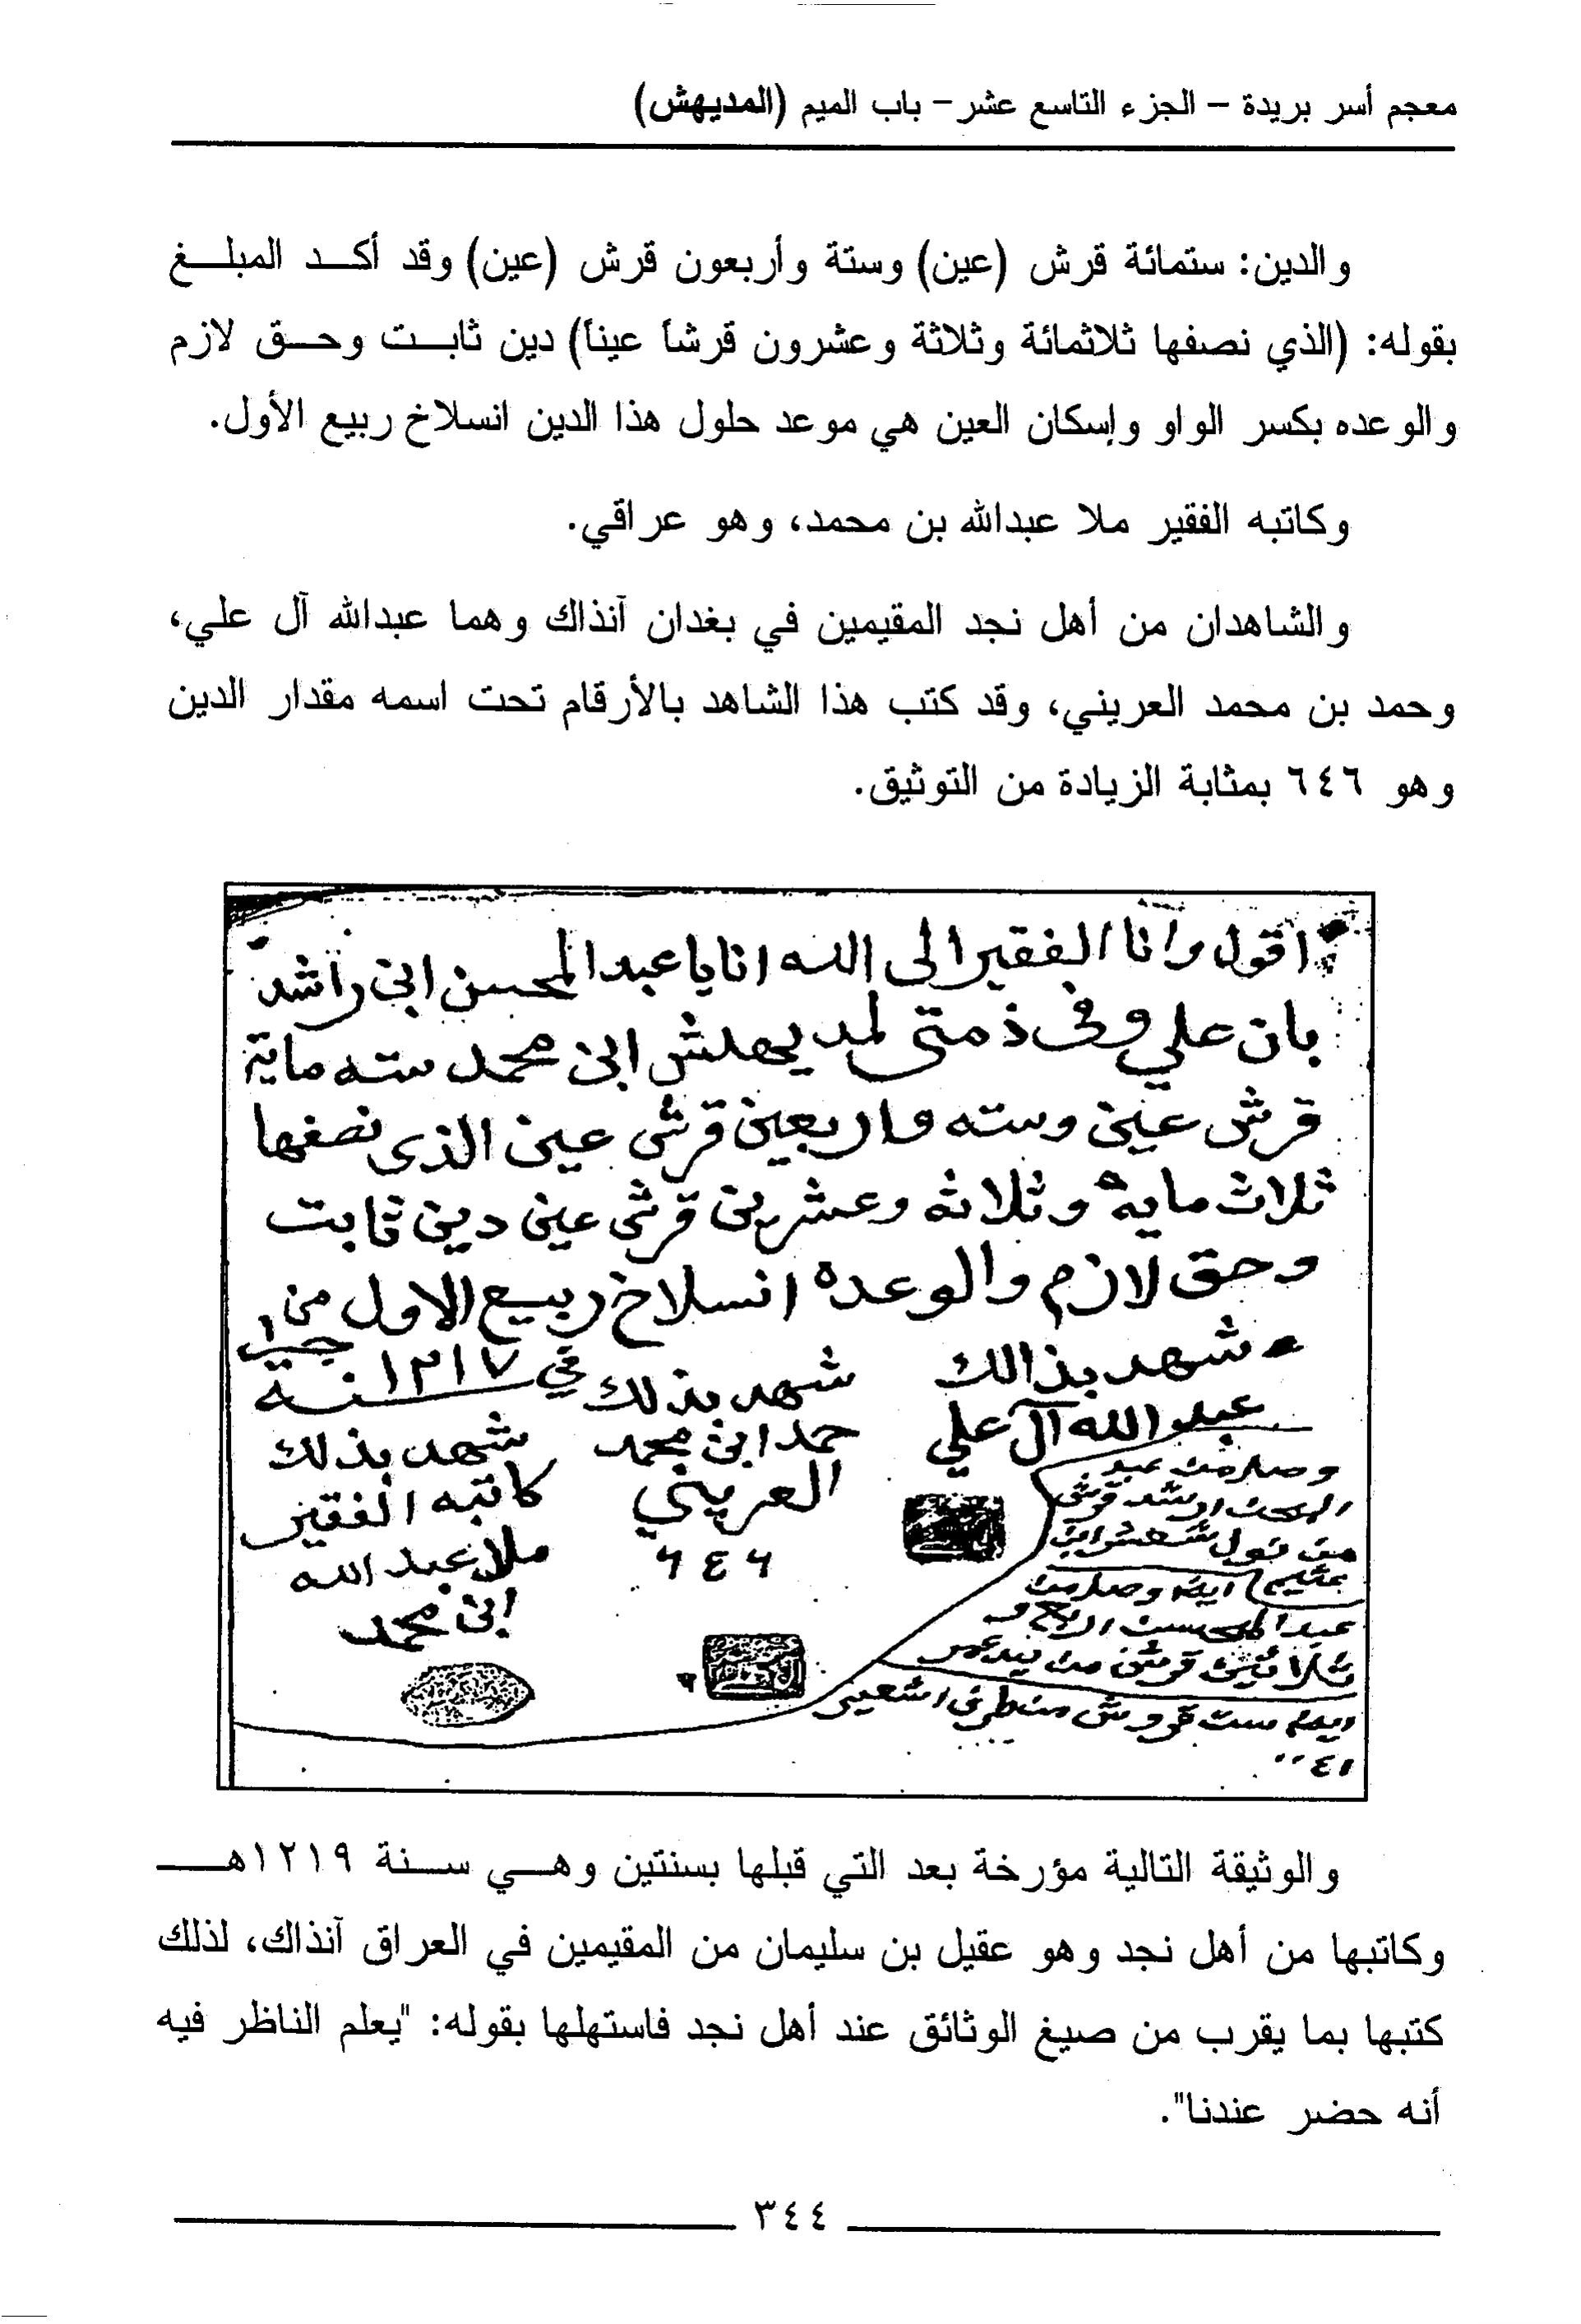 معجم أسر بريدة - الجزء التاسع عشر - باب الميم (المديهش)
والدين: ستمائة قرش (عين) وستة وأربعون قرش (عين) وقد أكد المبلغ
بقوله: (الذي نصفها ثلاثمائة وثلاثة وعشرون قرشاً عيناً) دين ثابت وحق لازم
والوعده بكسر الواو وإسكان العين هي موعد حلول هذا الدين انسلاخ ربيع الأول.
وكاتبه الفقير ملا عبدالله بن محمد، وهو عراقي.
والشاهدان من أهل نجد المقيمين في بغدان آنذاك وهما عبدالله آل علي،
وحمد بن محمد العريني، وقد كتب هذا الشاهد بالأرقام تحت اسمه مقدار الدين
وهو ٦٤٦ بمثابة الزيادة من التوثيق.
اقول وانا الفقير الى الله انايا عبد المحسن ابن راشد
بان علي وفي ذمتي لمديهش ابن محمد سته ماية
قرش عين وسته واربعين قرش عين الذي نصفها
ثلاث مايه وثلاثه وعشرين قرش عين دين ثابت
وحق لازم والوعده انسلاخ ربيع الاول من
في ١٢١٧ سنة
شهد بذالك
عبد الله آل علي
شهد بذلك
حمد ابن محمد
العريني
٦٤٦
شهد بذلك
كاتبه الفقير
ملا عبد الله
ابن محمد
وصل من عبد
ايضا وصل من
عبد المحسن اربع و
ثلاثين قرش من يد عمر
ايضا ست قروش
والوثيقة التالية مؤرخة بعد التي قبلها بسنتين وهي سنة ١٢١٩هـ
وكاتبها من أهل نجد وهو عقيل بن سليمان من المقيمين في العراق آنذاك، لذلك
كتبها بما يقرب من صيغ الوثائق عند أهل نجد فاستهلها بقوله: "يعلم الناظر فيه
أنه حضر عندنا".
٣٤٤